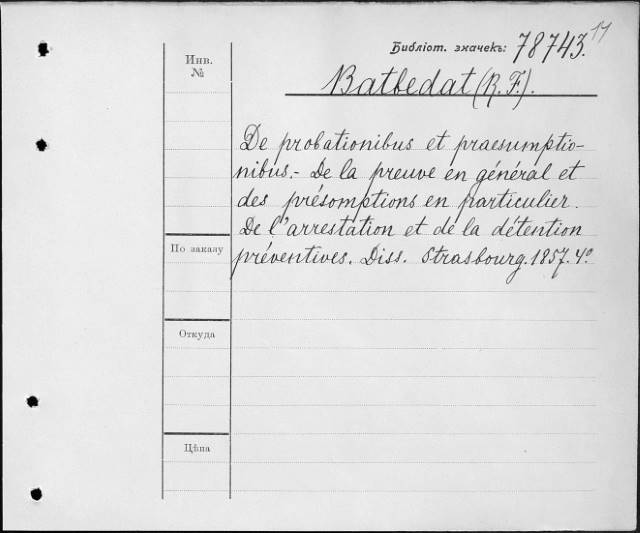 Библіот. значекъ: 78743. 11
Инв.
№
Batbedat (R. F.).
De probationibus et praesumptio-
nibus.- De la preuve en général et
des présomptions en particulier.
De l'arrestation et de la détention
По заказу
préventives. Diss. Strasbourg. 1857. 4º
Откуда
Цѣна